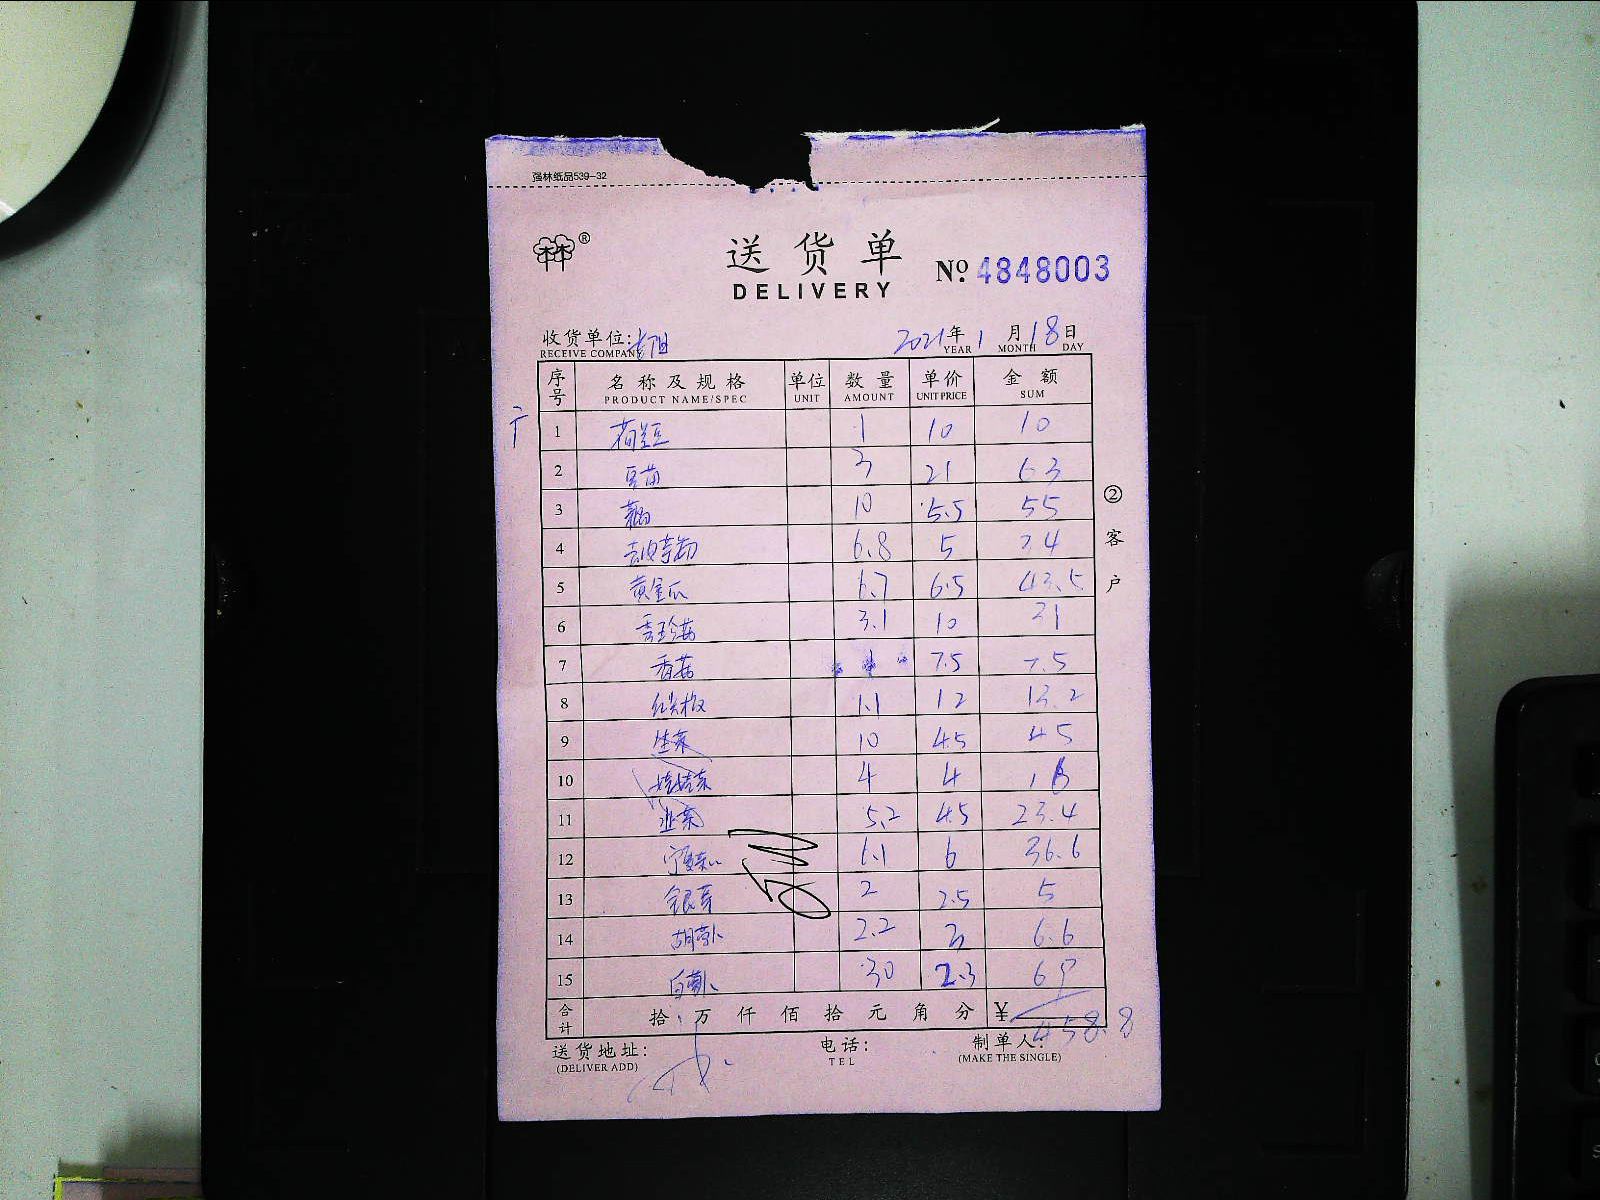 强林纸品539-32
林林®
送货单
DELIVERY
№ 4848003
收货单位: 2021年 1月 18日
RECEIVE COMPANY YEAR MONTH DAY
序号 名称及规格 单位 数量 单价 金额
PRODUCT NAME/SPEC UNIT AMOUNT UNIT PRICE SUM
1 荷兰豆 1 10 10
2 豆苗 3 21 63
3 藕 10 5.5 55
4 去皮莴笋 6.8 5 34
5 黄金瓜 6.7 6.5 43.5
6 秀珍菇 3.1 10 31
7 香菇 1 7.5 7.5
8 红尖椒 1.1 12 13.2
9 生菜 10 4.5 45
10 娃娃菜 4 4 16
11 韭菜 5.2 4.5 23.4
12 宁夏菜心 6.1 6 36.6
13 银芽 2 2.5 5
14 胡萝卜 2.2 3 6.6
15 白萝卜 30 2.3 69
合计 拾 万 仟 佰 拾 元 角 分 ¥ 458.8
送货地址: 电话: 制单人:
(DELIVER ADD) TEL (MAKE THE SINGLE)
②客户